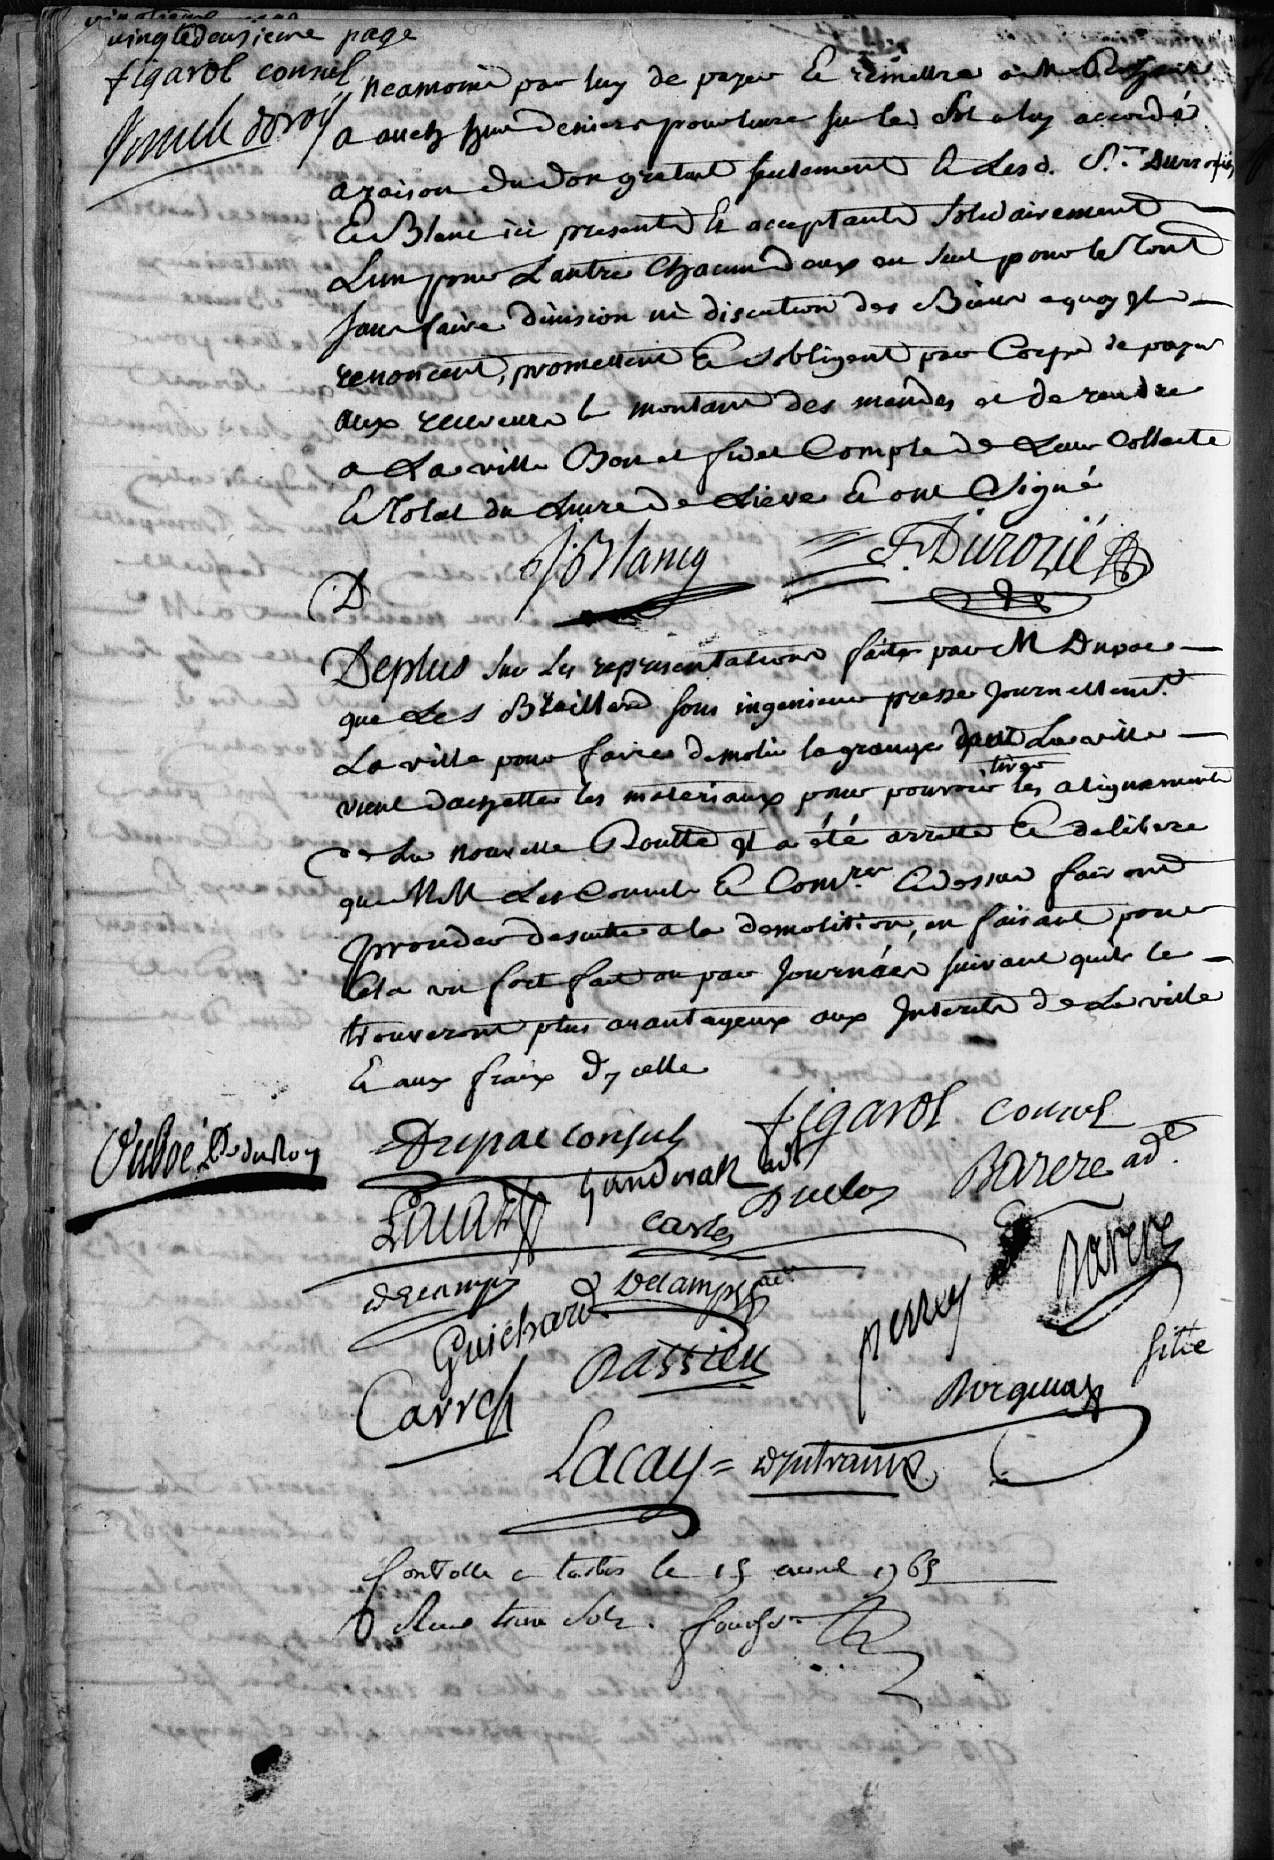 vingtedeusieme page
figarol consul
neamoins par luy de payer Et remettre a M
a auch deniers pour livre sur les Sol a luy accordé
a raison du don gratuit seulement Et Lesd. Srs Durosies
Et Blanc ici presents Et acceptants solidairement
Lun pour Lautre chacun d'eux un seul pour le tout
sans faire division ni discution des Biens a quoy Ils
renoncent, promettent Et s'obligent par Corps de payer
aux receveurs le montant des mandes et de rendre
a La ville Bon et fidel Compte de Leur Collecte
Et Total du Livre de Lieve Et ont Signé
J. Blancq
F. Durozié
D
Deplus sur Les representations faites par M Dupac
que Les Srs Braillard sous ingenieur presse Journellemt
La ville pour faire demolir la grange dont La ville
vient dachetter les materiaux pour pouvoir tirer les alignements
de La nouvelle Routte Il a été arretté Et deliberé
que MM Les Consuls Et Comres Cidessus fairont
proceder desuitte a la demolition, en faisant pour
Cela un fort fait ou par Journées suivant quils le
trouveront plus avantageux aux Interets de La ville
Et aux fraix d'ycelle
Dupac consul
figarol consul
Duboé Pr du Roy
Barere ad.
Duclos
Castes
decamps
Decamps
Guichard
Bassieu
perrey
Barere
Carrest
Lacay = dyntrans
Controllé a tarbes le 15 avril 1765
Reçu treize Sols.